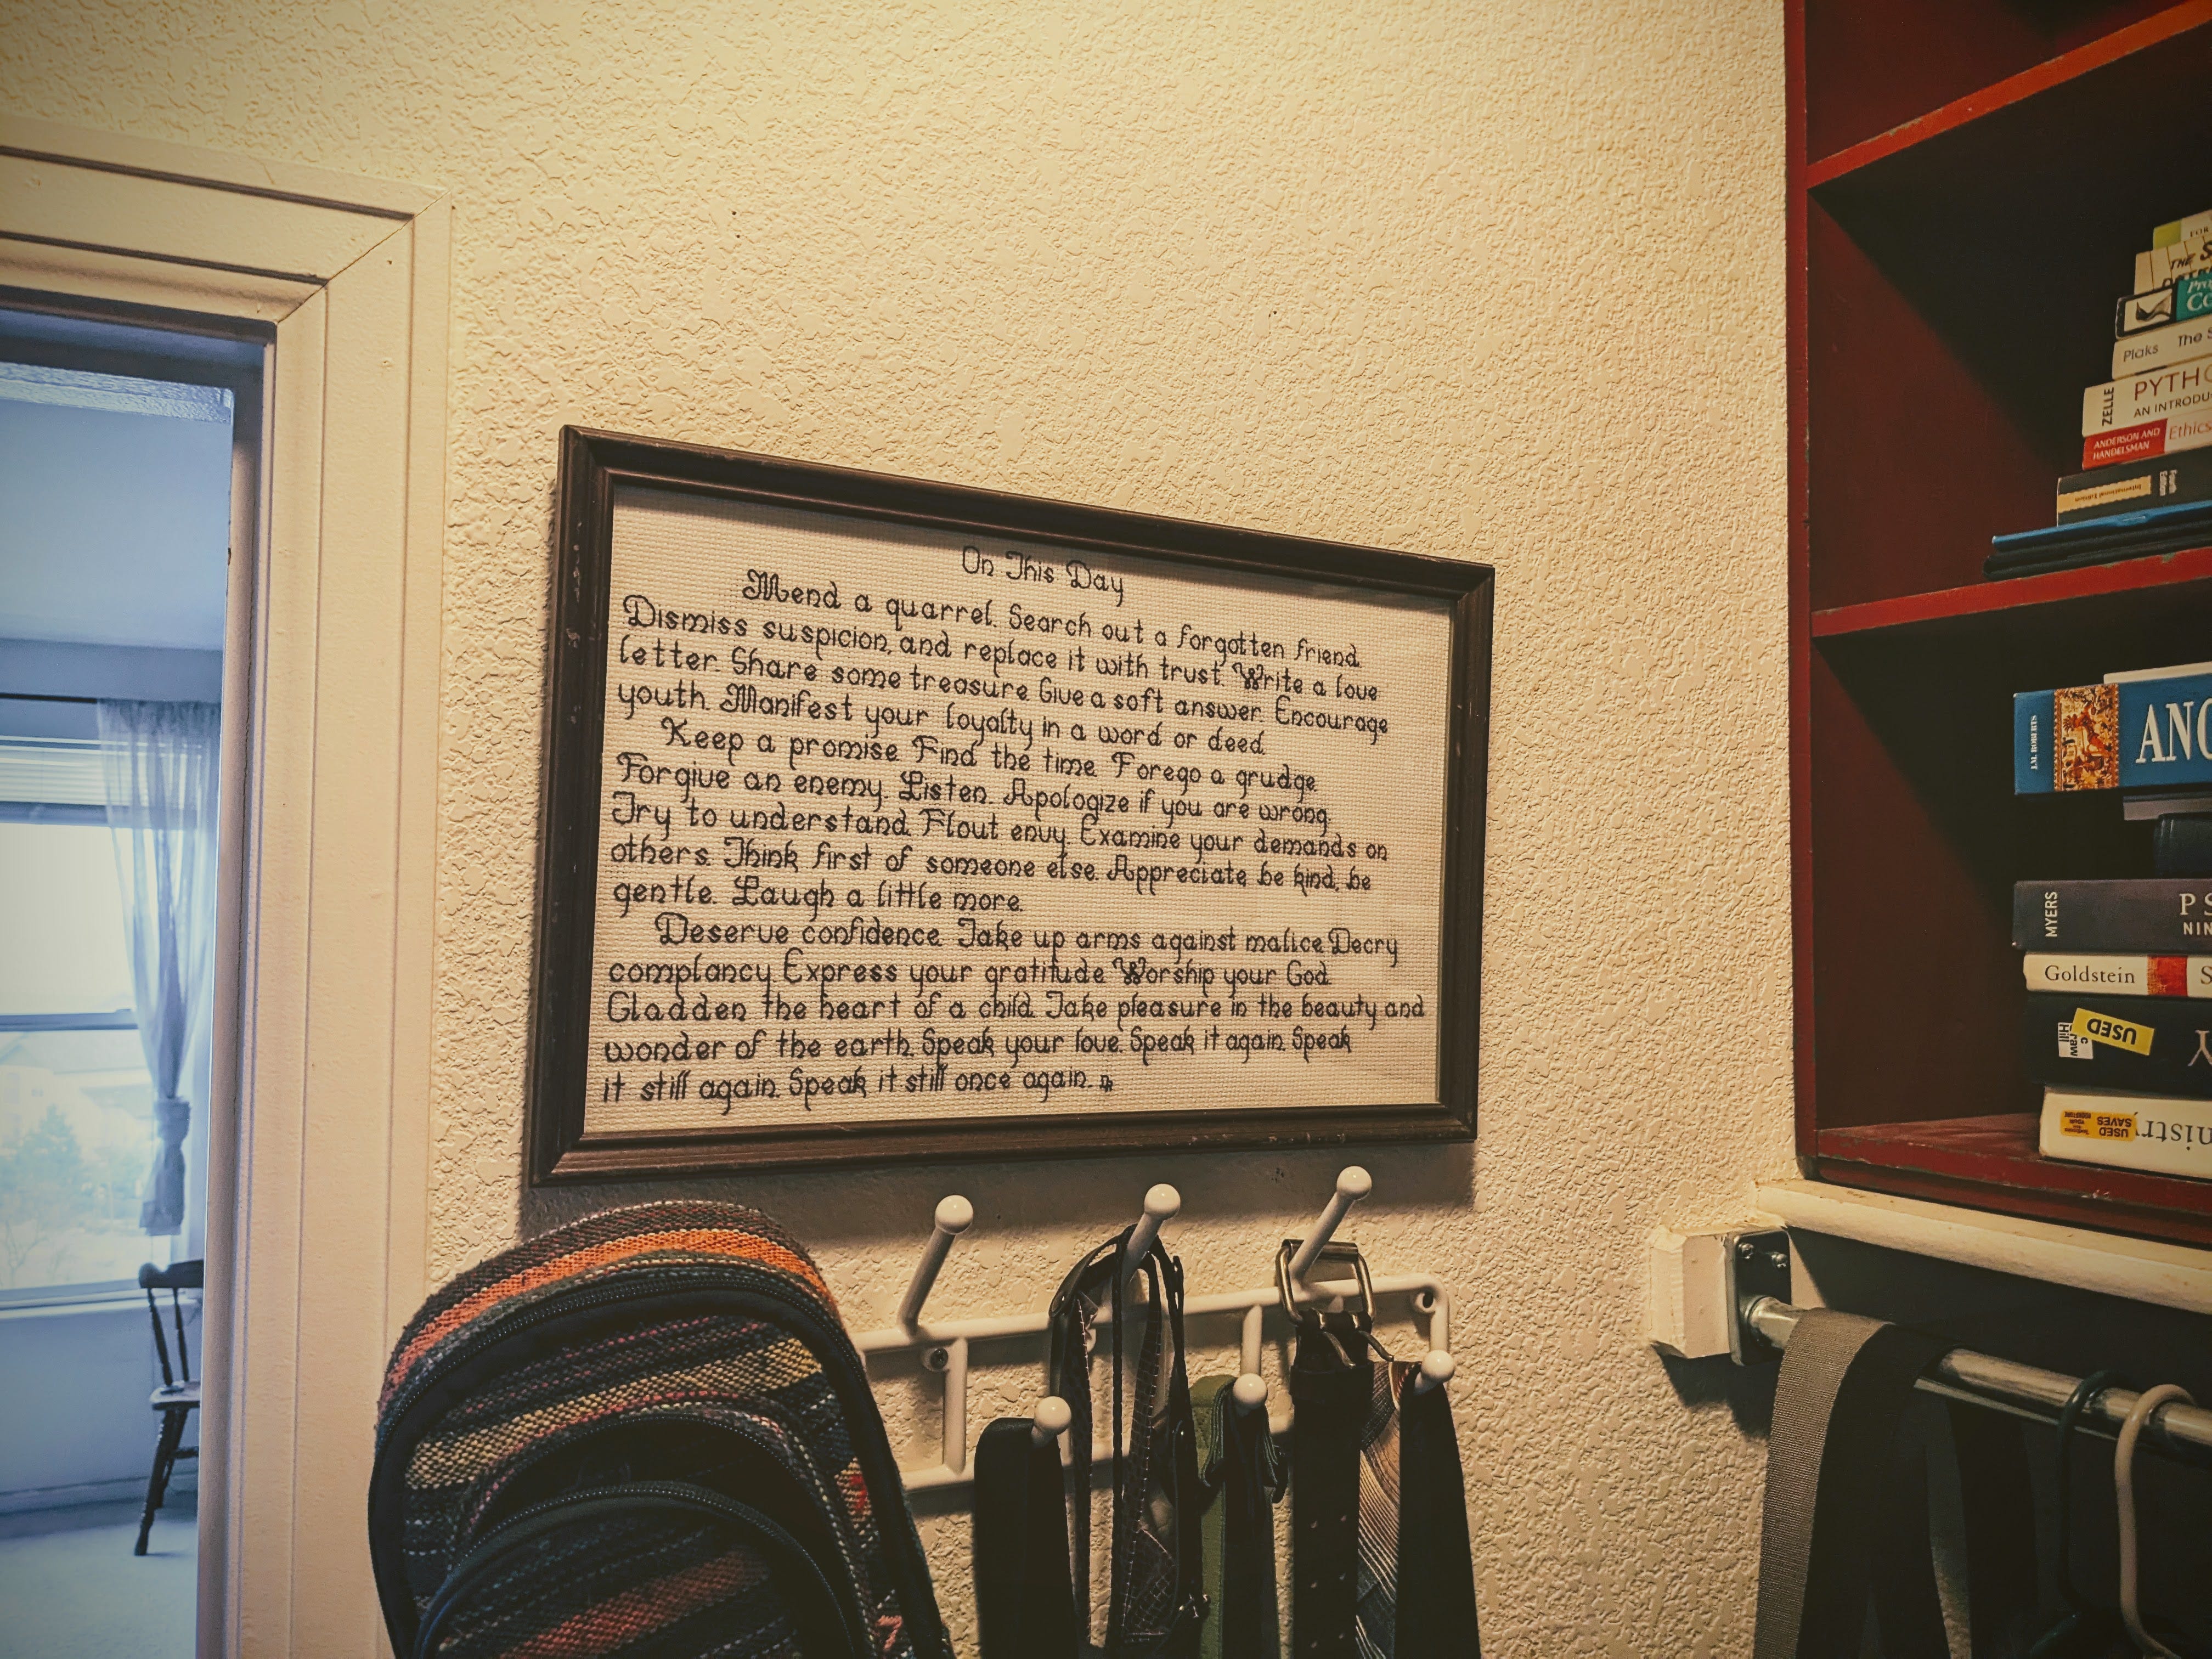 On This Day
Mend a quarrel. Search out a forgotten friend.
Dismiss suspicion, and replace it with trust. Write a love
letter. Share some treasure. Give a soft answer. Encourage
youth. Manifest your loyalty in a word or deed.
Keep a promise. Find the time. Forego a grudge.
Forgive an enemy. Listen. Apologize if you are wrong.
Try to understand. Flout envy. Examine your demands on
others. Think first of someone else. Appreciate be kind, be
gentle. Laugh a little more.
Deserve confidence. Take up arms against malice. Decry
complancy. Express your gratitude. Worship your God.
Gladden the heart of a child. Take pleasure in the beauty and
wonder of the earth. Speak your love. Speak it again. Speak
it still again. Speak it still once again.
FOR
THE S
Pro
Co
Plaks The S
ZELLE
PYTHO
AN INTRODU
ANDERSON AND
HANDELSMAN
Ethics
International Edition
Fourth
Edition
J.M. ROBERTS
ANC
MYERS
PS
NIN
Goldstein S
USED
raw
Hill
Y
USED
SAVES
nistry